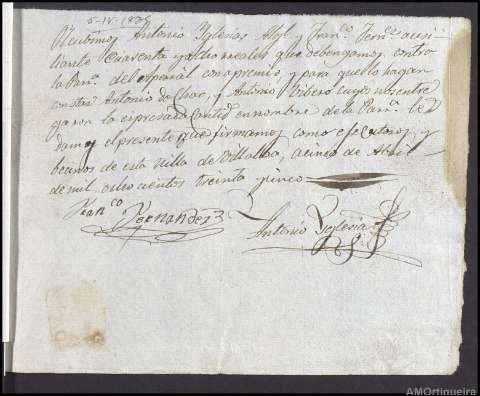 5-IV-1835
Recibimos Antonio Yglesias Algl y Franco Fernz auxi
liante Cuarenta y ocho reales que debengamos contra
la Parra. del espasal con apremio, y para que lo hagan
constar Antonio do Chao, y Antonio Ribero cuyos nos entre
garon la espresada Cantid en nombre de la Parra. le
damos el presente que firmamos como efecutores y
becinos de esta Villa de Villalba, a cinco de Abril
de mil ochocientos treinta y cinco
Franco Fernandez
Antonio Yglesia
AMOrtigueira